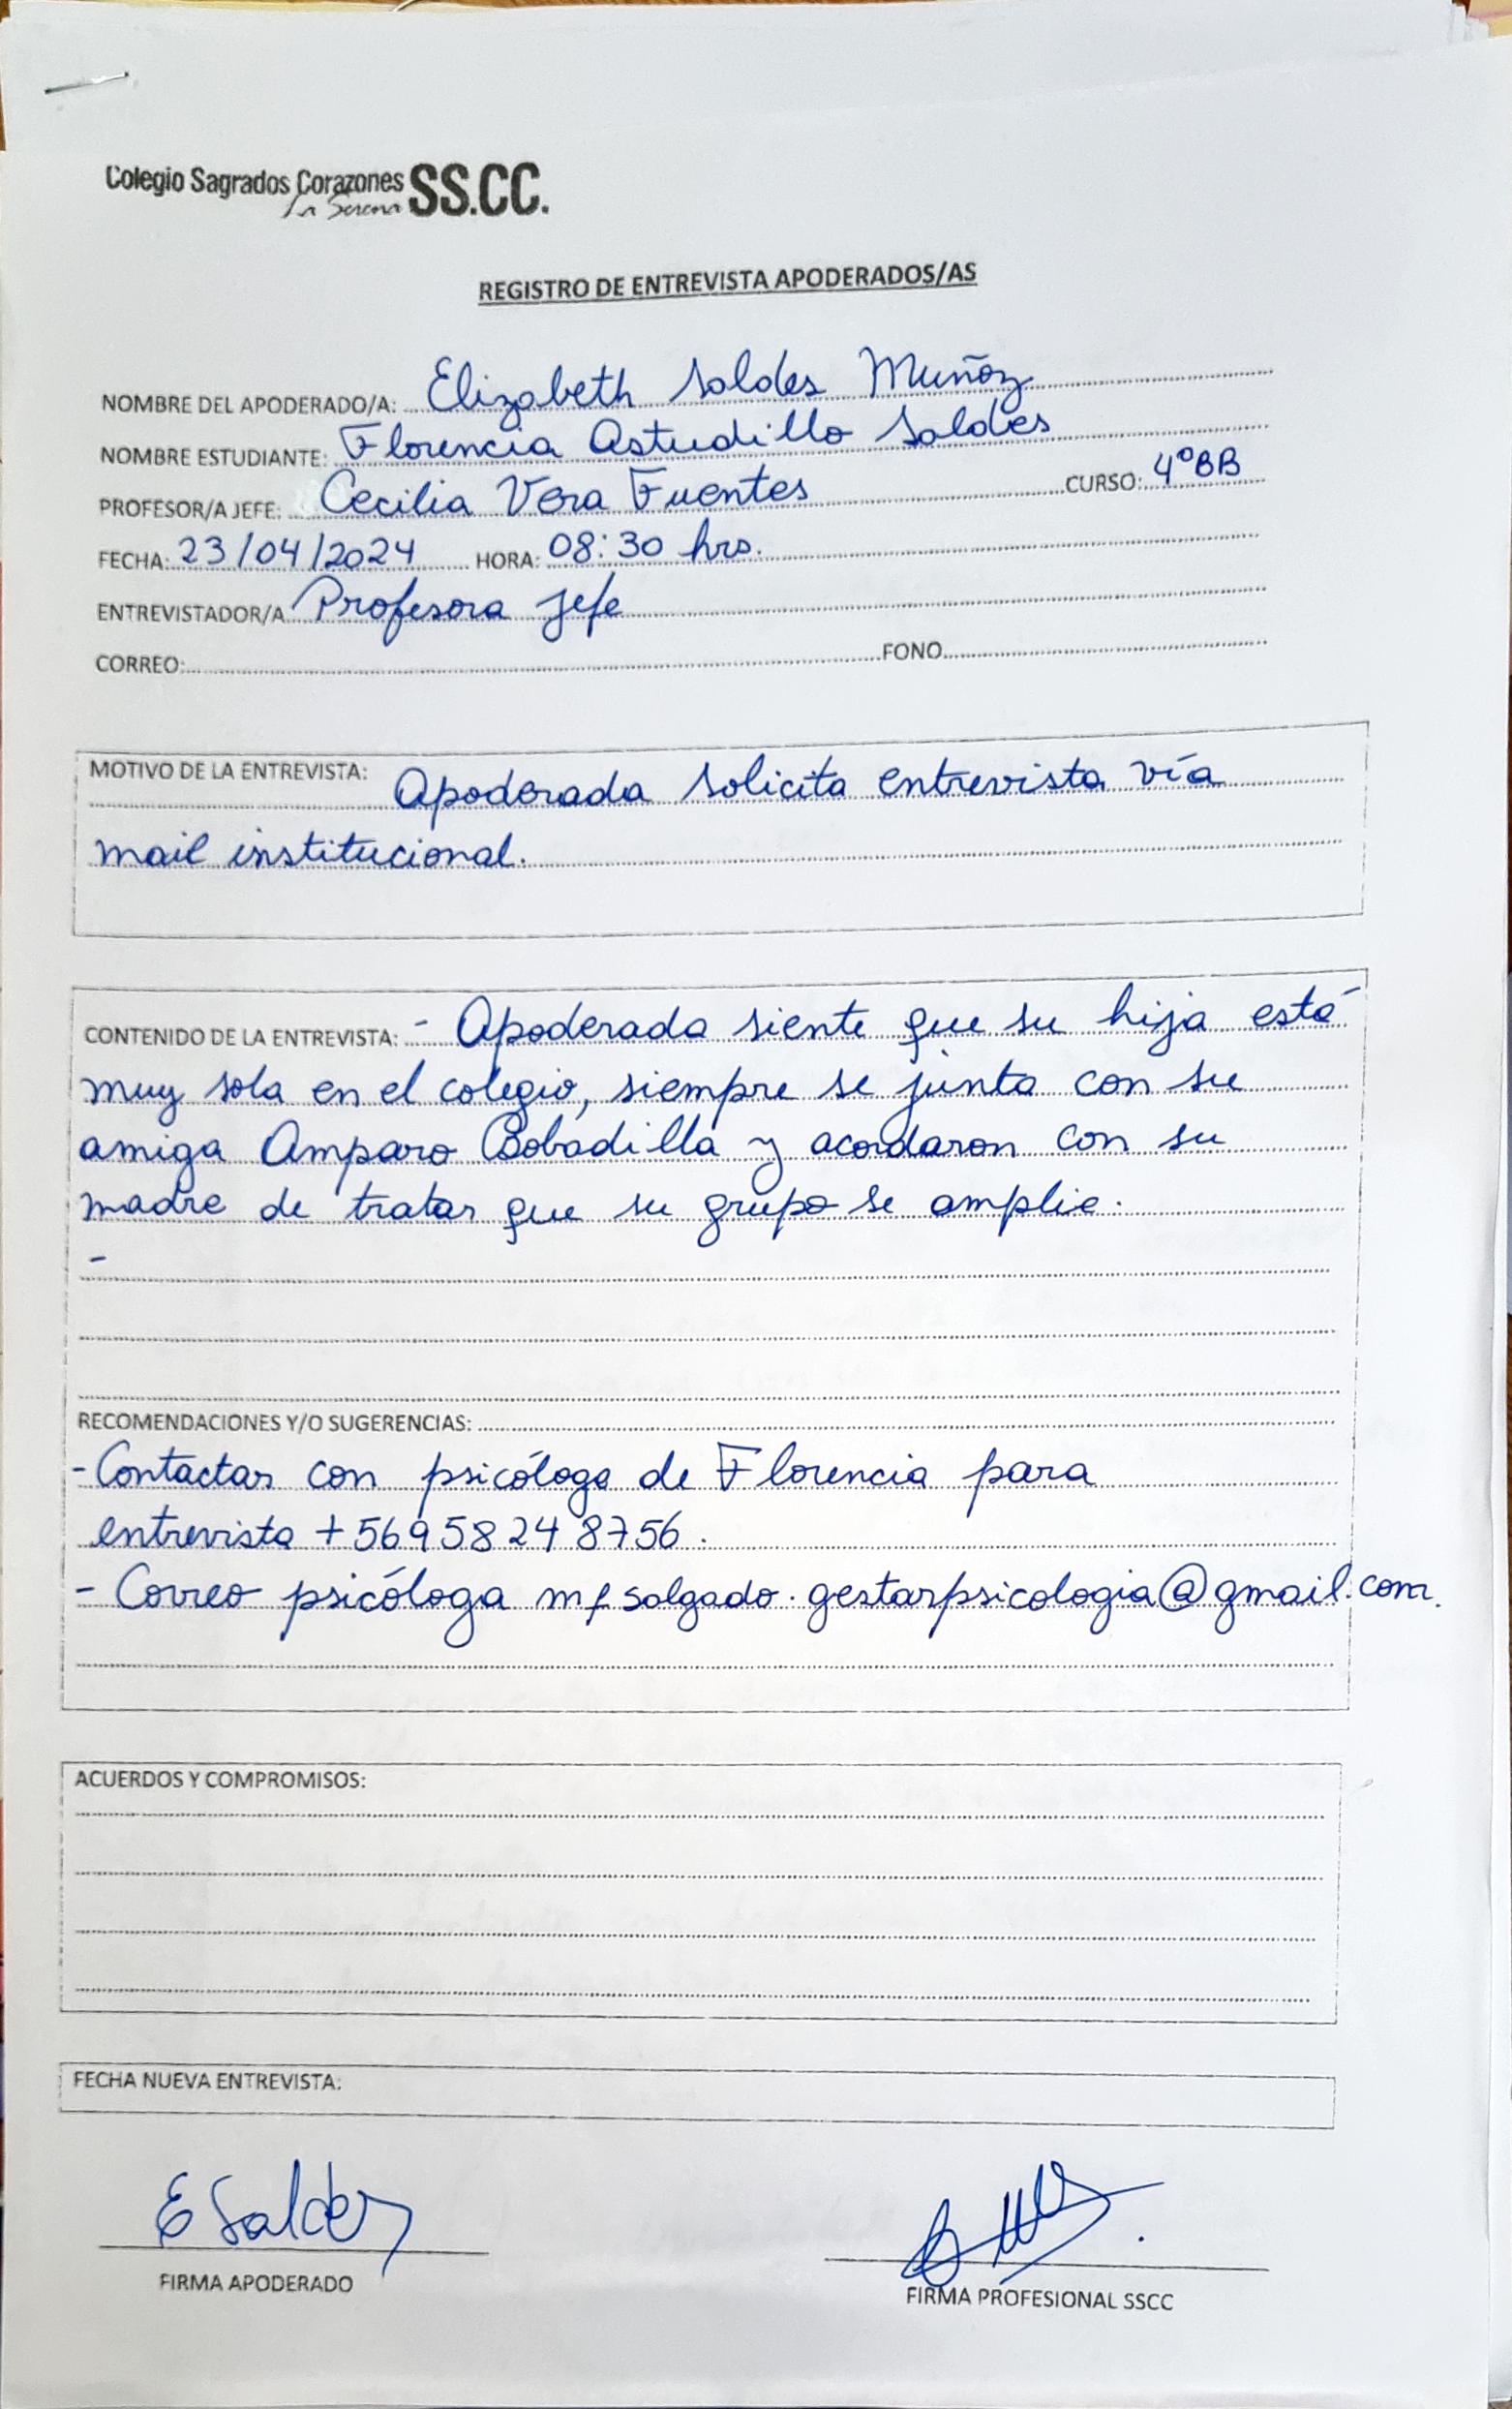 Colegio Sagrados Corazones SS.CC.
La Serena
REGISTRO DE ENTREVISTA APODERADOS/AS
NOMBRE DEL APODERADO/A: Elizabeth Saldes Muñoz
NOMBRE ESTUDIANTE: Florencia Astudillo Saldes
PROFESOR/A JEFE: Cecilia Vera Fuentes CURSO: 4°BB
FECHA: 23/04/2024 HORA: 08:30 hrs.
ENTREVISTADOR/A Profesora Jefe
CORREO: FONO
MOTIVO DE LA ENTREVISTA: Apoderada solicita entrevista vía
mail institucional.
CONTENIDO DE LA ENTREVISTA: - Apoderada siente que su hija está
muy sola en el colegio, siempre se junta con su
amiga Amparo Bobadilla y acordaron con su
madre de tratar que su grupo se amplie.
-
RECOMENDACIONES Y/O SUGERENCIAS:
- Contactar con psicóloga de Florencia para
entrevista +56958248756.
- Correo psicóloga mfsalgado.gestarpsicologia@gmail.com.
ACUERDOS Y COMPROMISOS:
FECHA NUEVA ENTREVISTA:
E Saldes
FIRMA APODERADO
FIRMA PROFESIONAL SSCC